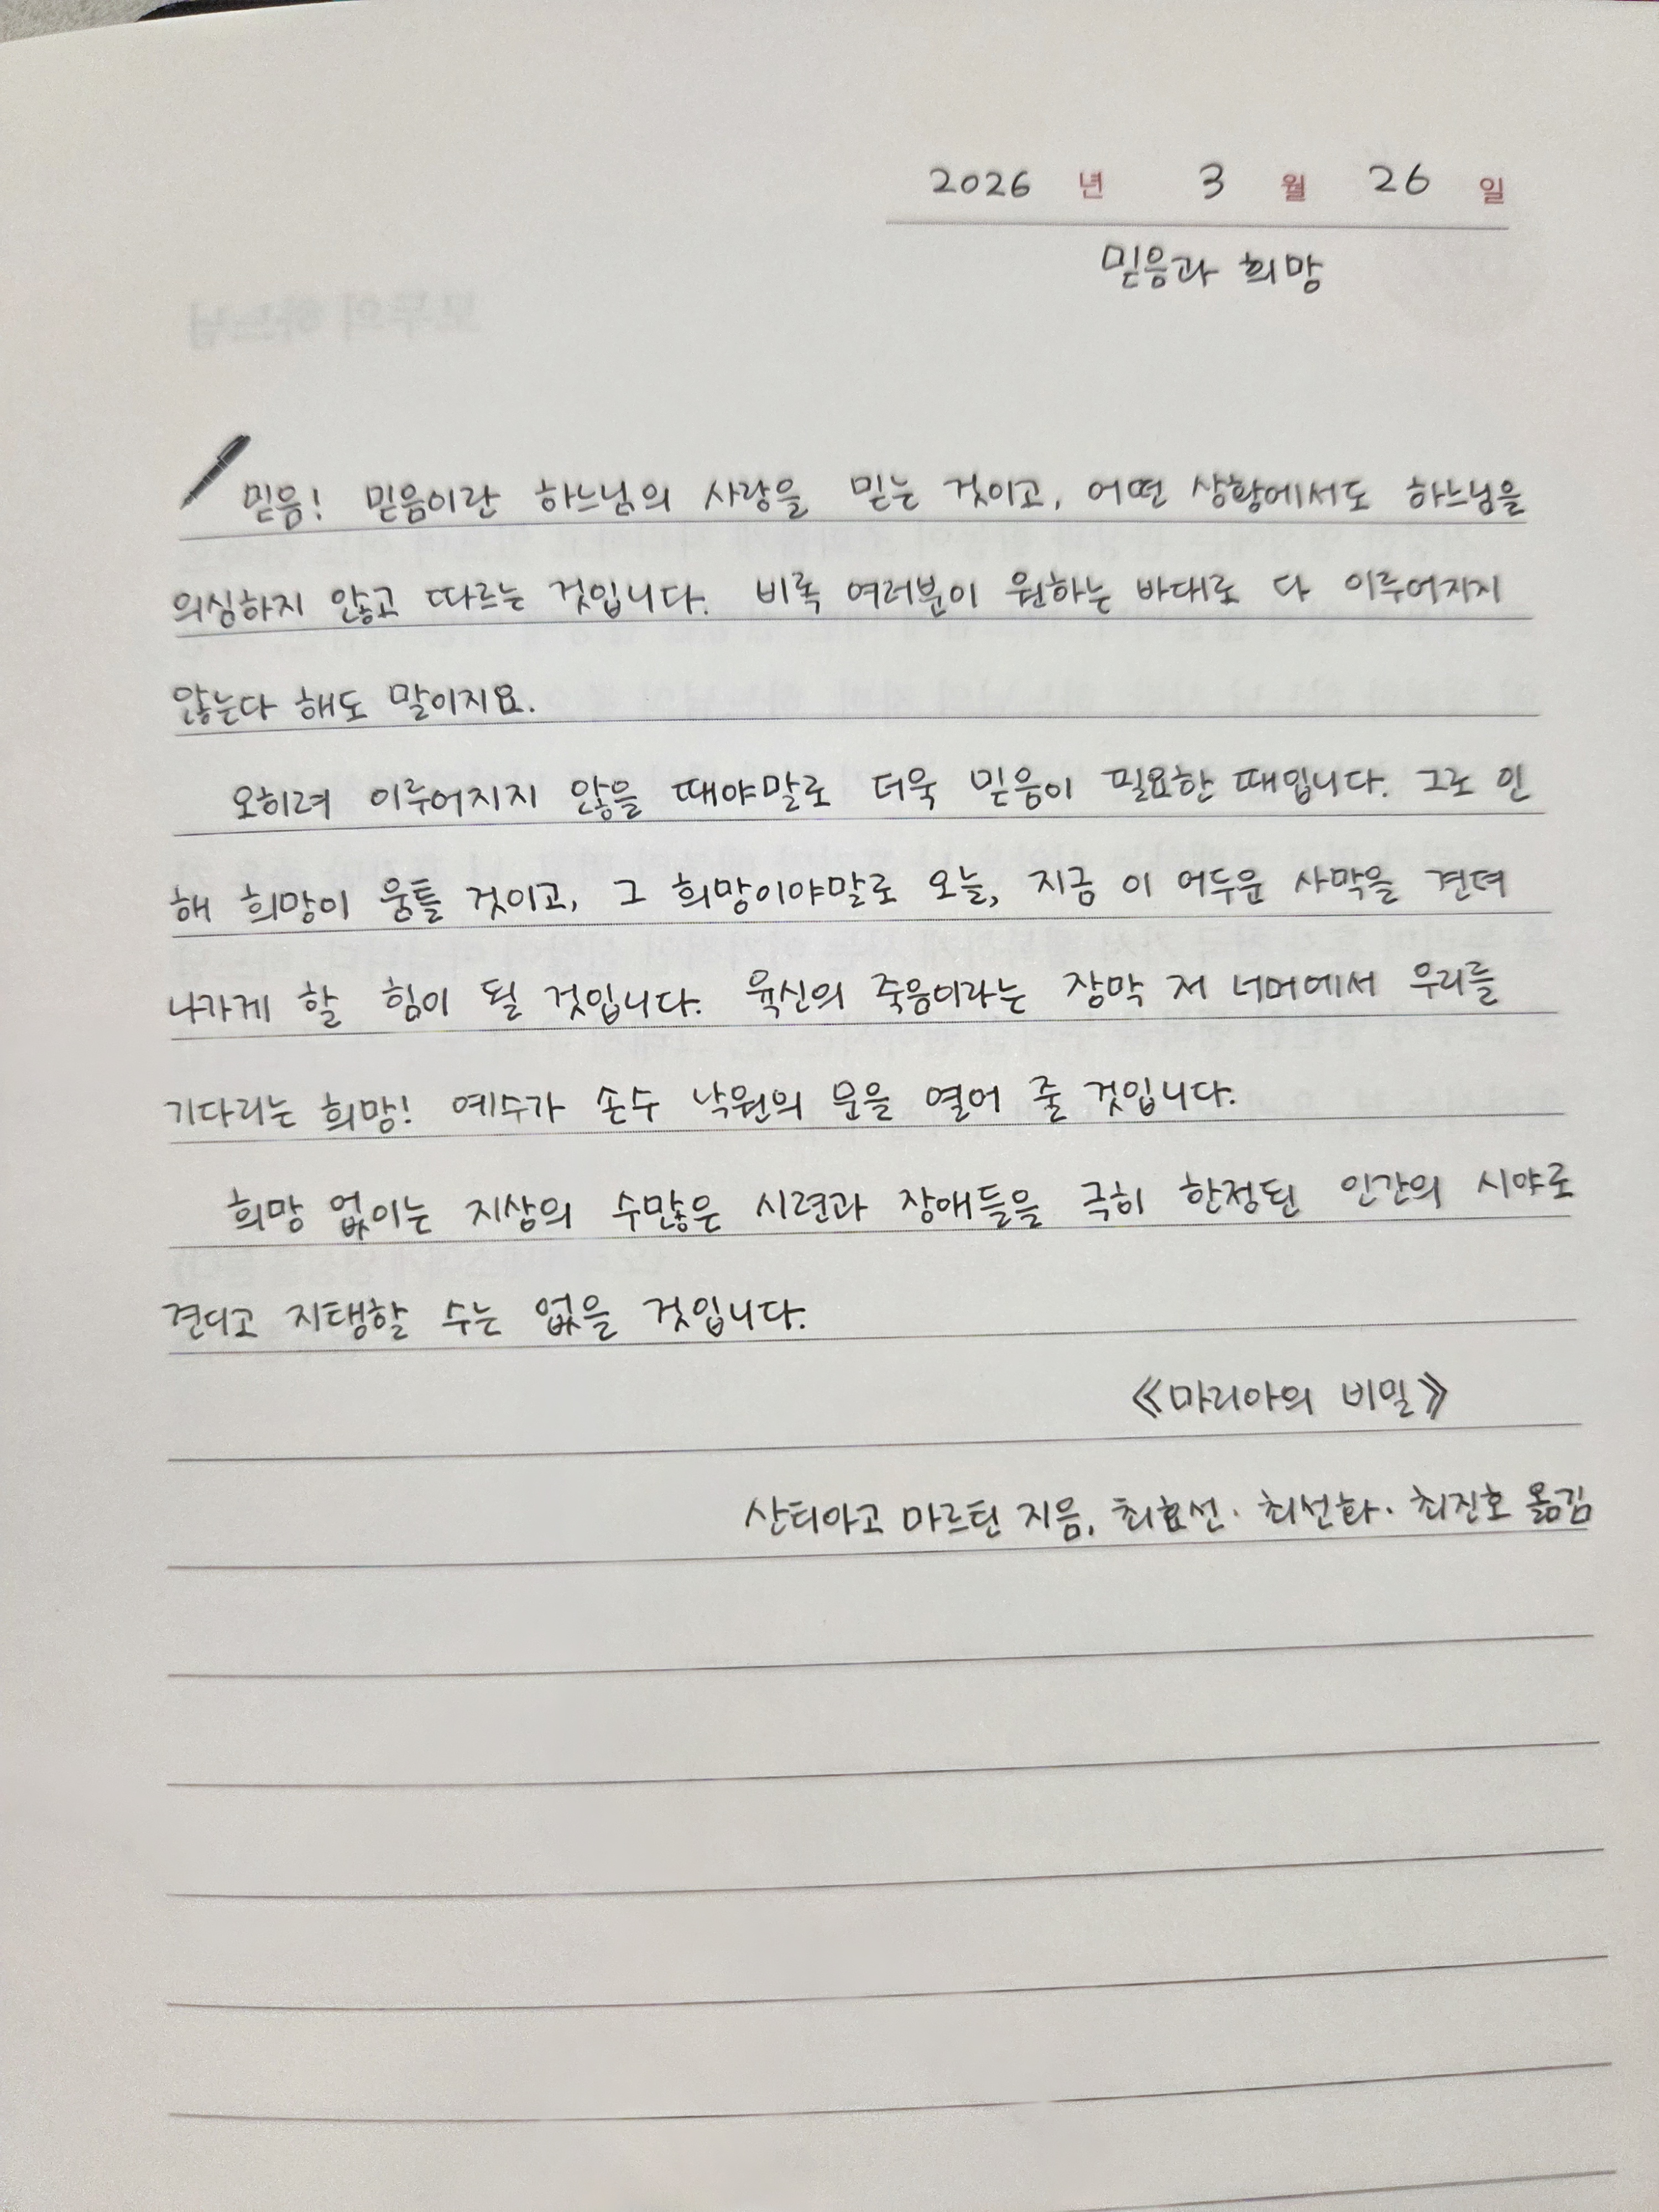 2026 년 3 월 26 일
믿음과 희망
믿음! 믿음이란 하느님의 사랑을 믿는 것이고, 어떤 상황에서도 하느님을
의심하지 않고 따르는 것입니다. 비록 여러분이 원하는 바대로 다 이루어지지
않는다 해도 말이지요.
오히려 이루어지지 않을 때야말로 더욱 믿음이 필요한 때입니다. 그로 인
해 희망이 움틀 것이고, 그 희망이야말로 오늘, 지금 이 어두운 사막을 견뎌
나가게 할 힘이 될 것입니다. 육신의 죽음이라는 장막 저 너머에서 우리를
기다리는 희망! 예수가 손수 낙원의 문을 열어 줄 것입니다.
희망 없이는 지상의 수많은 시련과 장애들을 극히 한정된 인간의 시야로
견디고 지탱할 수는 없을 것입니다.
《마리아의 비밀》
산티아고 마르틴 지음, 최효선·최선화·최진호 옮김